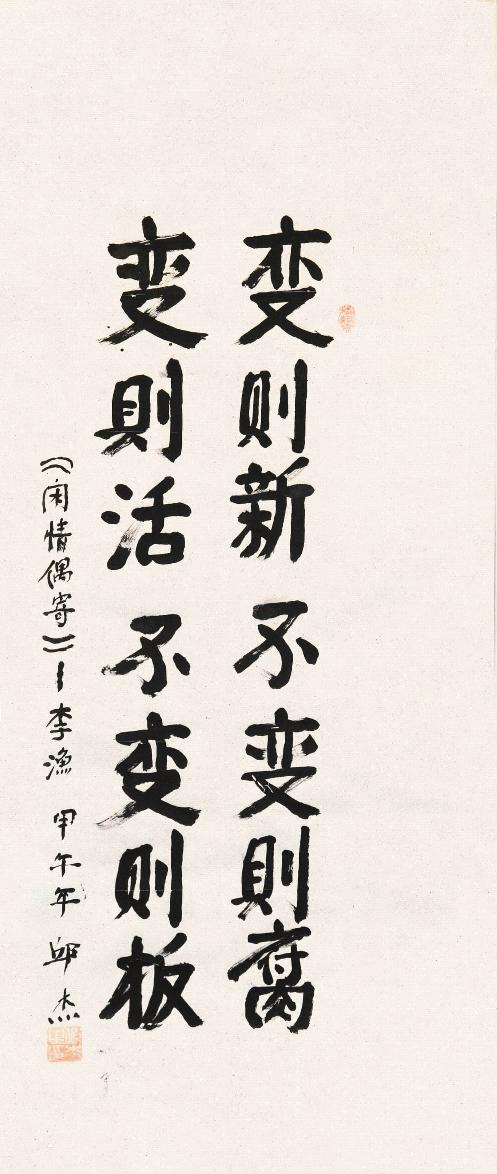 变则新 不变則腐
变則活 不变则板
《闲情偶寄》—李漁 甲午年 邱杰